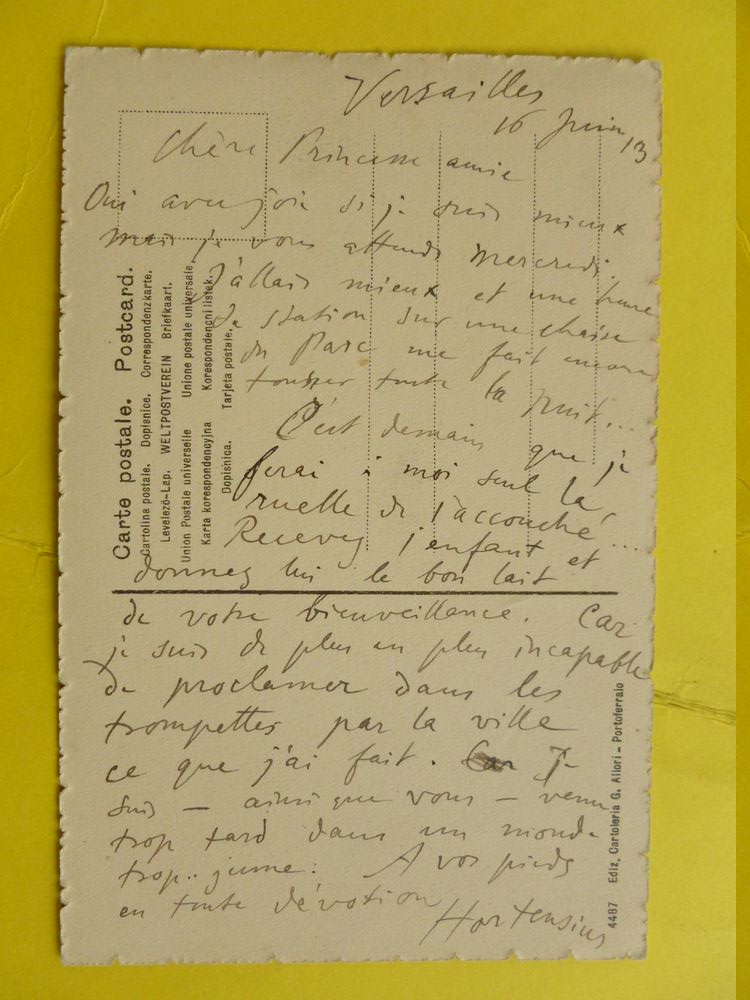 Versailles
16 Juin 13
Chère Princesse amie
Oui avec joie si je suis mieux
mais je vous attends mercredi.
J'allais mieux et une heure
de station sur une chaise
du Parc me fait encore
tousser toute la nuit...
C'est demain que je
ferai à moi seul la
ruelle de l'accouché...
Recevez l'enfant et
donnez lui le bon lait
de votre bienveillance. Car
je suis de plus en plus incapable
de proclamer dans les
trompettes par la ville
ce que j'ai fait. Je
suis — ainsi que vous — venu
trop tard dans un monde
trop jeune. A vos pieds
en toute dévotion
Hortensius
Carte postale. Postcard.
Cartolina postale. Dopisnice. Correspondenzkarte.
Levelező-Lap. WELTPOSTVEREIN Briefkaart.
Union Postale universelle Unione postale universale
Karta korespondencyjna Korespondencni listek.
Dopisnica. Tarjeta postale.
4487 Ediz. Cartoleria G. Allori - Portoferraio